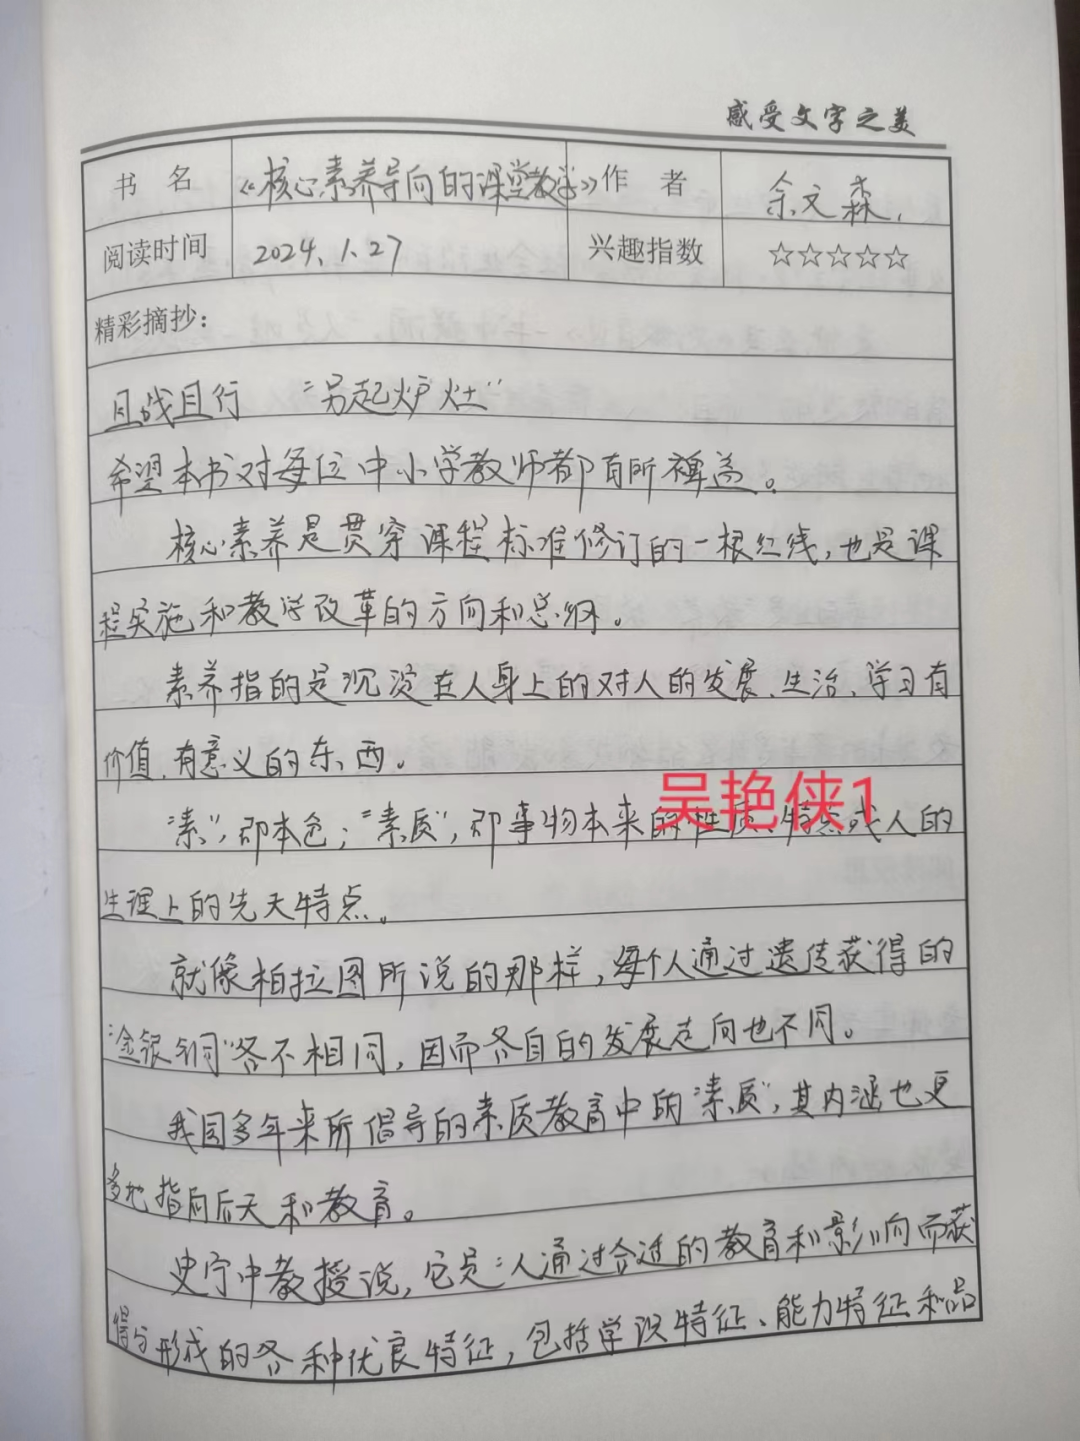 感受文字之美
书 名 《核心素养导向的课堂教学》 作 者 余文森
阅读时间 2024、1.27 兴趣指数 ☆☆☆☆☆
精彩摘抄：
且战且行 “另起炉灶”
希望本书对每位中小学教师都有所裨益。
核心素养是贯穿课程标准修订的一根红线，也是课
程实施和教学改革的方向和总纲。
素养指的是沉淀在人身上的对人的发展、生活、学习有
价值，有意义的东西。
“素”，即本色；“素质”，即事物本来的性质、特点或人的
生理上的先天特点。
吴艳侠1
就像柏拉图所说的那样，每个人通过遗传获得的
“金银铜”各不相同，因而各自的发展走向也不同。
我国多年来所倡导的素质教育中的“素质”，其内涵也更
多地指向后天和教育。
史宁中教授说，它是：人通过合适的教育和影响而获
得与形成的各种优良特征，包括学识特征、能力特征和品